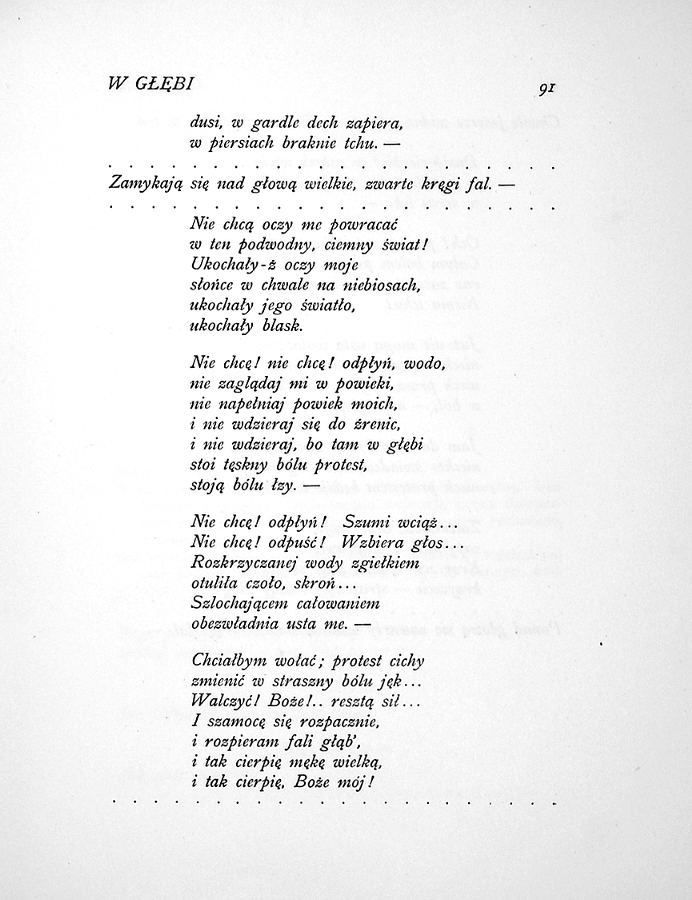 W GŁĘBI 91
dusi, w gardle dech zapiera,
w piersiach braknie tchu. —
. . . . . . . . . . . . . . . . . . . . . .
Zamykają się nad głową wielkie, zwarte kręgi fal. —
. . . . . . . . . . . . . . . . . . . . . .
Nie chcą oczy me powracać
w ten podwodny, ciemny świat!
Ukochały-ż oczy moje
słońce w chwale na niebiosach,
ukochały jego światło,
ukochały blask.
Nie chcę! nie chcę! odpłyń, wodo,
nie zaglądaj mi w powieki,
nie napełniaj powiek moich,
i nie wdzieraj się do źrenic,
i nie wdzieraj, bo tam w głębi
stoi tęskny bólu protest,
stoją bólu łzy. —
Nie chcę! odpłyń! Szumi wciąż...
Nie chcę! odpuść! Wzbiera głos...
Rozkrzyczanej wody zgiełkiem
otuliła czoło, skroń...
Szlochającem całowaniem
obezwładnia usta me. —
Chciałbym wołać; protest cichy
zmienić w straszny bólu jęk...
Walczyć! Boże!.. resztą sił...
I szamocę się rozpacznie,
i rozpieram fali głąb',
i tak cierpię mękę wielką,
i tak cierpię, Boże mój!
. . . . . . . . . . . . . . . . . . . . . .